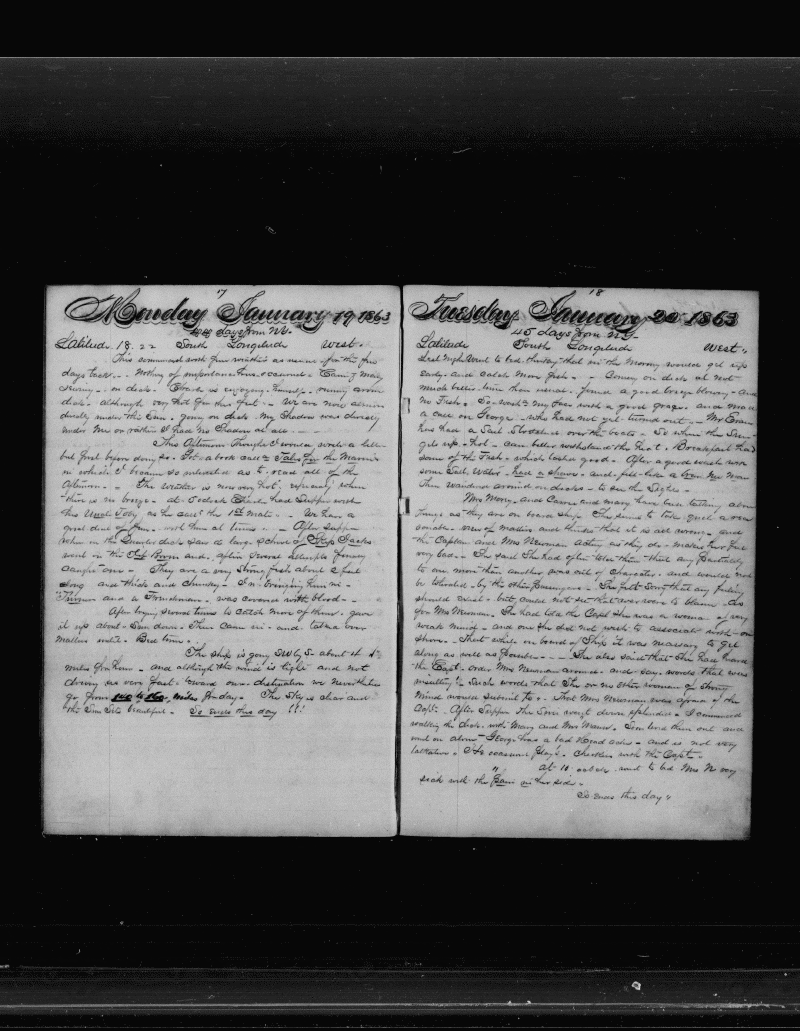 17
Monday January 19 1863
44 days from N.Y.
Latitude 18.22 South Longitude West.
This commences with fine weather as usual for the few
days back. Nothing of importance has occured. Tommy
on deck. Charles is enjoying himself running around
deck although very hot for the feet. We are now almost
directly under the Sun. going on deck My Shadow was directly
under Me or rather I had no Shadow at all
This Afternoon Thought I would write a little
but first before doing so. Got a book call'd Tales for the Marines
in which I became so interested as to read all of the
Afternoon. The weather is now very hot, especialy when
there is no breeze. at 5 oclock had Supper with
this Uncle Toby as he call the 1st mate. We have a
great deal of fun with him at times. After supper
when on the deck saw a large school of Skip Jacks
went on the and after several attempts
caught one. They are a very strong fish about 2 feet
long and thick and chunky. In
and a was covered with blood
After trying several times to catch more of them gave
it up about Sun down. Then came in and talked over
matters until Bed time.
The ship is going SW by S. about 4
miles an hour and although the wind is light and not
driving us very fast toward our destination we Nevertheless
go from to 160 miles a day. The Sky is clear and
the Sun Sets beautiful. So ends this day !!!
18
Tuesday January 20 1863
45 days from N.Y.
Latitude South Longitude West.
Last Night Went to bed thinking that in the Morning would get up
Early and catch More fish. Coming on deck at
much better time than usual. found a good breeze blowing and
No Fish. So wash'd My face with a good and made
a call on George who had not yet turned out. Mr Evans
has had a Sail Stretched over the boats. So when the Sun
gets up hot can better withstand the heat. Breakfast had
some of the Fish which tasted good. After a good wash with
some Salt Water, had a shave and felt like a New Man
Then wandered around on decks to see the Sights.
Mrs Mory and Carrie and many have been talking about
things as they are on board Ship. She seems to take quite a
view of matters and thinks that it is all wrong and
the Captain and Mrs Newman acting as they do makes her feel
very bad. She said She had often told them that any Partiality
to one more than another was out of character and would not
be tolerated by the other Passengers. She felt Sorry that any feeling
should exist but could not see that ever were to blame. As
for Mrs Newman. She had told the Capt. She was a woman of very
weak mind and one she did not wish to associate with on
shore. That while on board of Ship it was necessary to get
along as well as Possible. She also said that She had heard
the Capt. order Mrs Newman around and say words that were
insulting. Such words that She or no other woman of Strong
Mind would submit to. That Mrs Newman was afraid of the
Capt. After Supper the Sun went down splendid. I commenced
walking the deck with Mary and Mrs Mann. Soon left them out and
went on alone. George has a bad Head ache and is not very
talkative. He occasional plays Checkers with the Capt.
At 10 oclock went to bed Mrs N very
sick with the Pain in her side.
So ends this day.